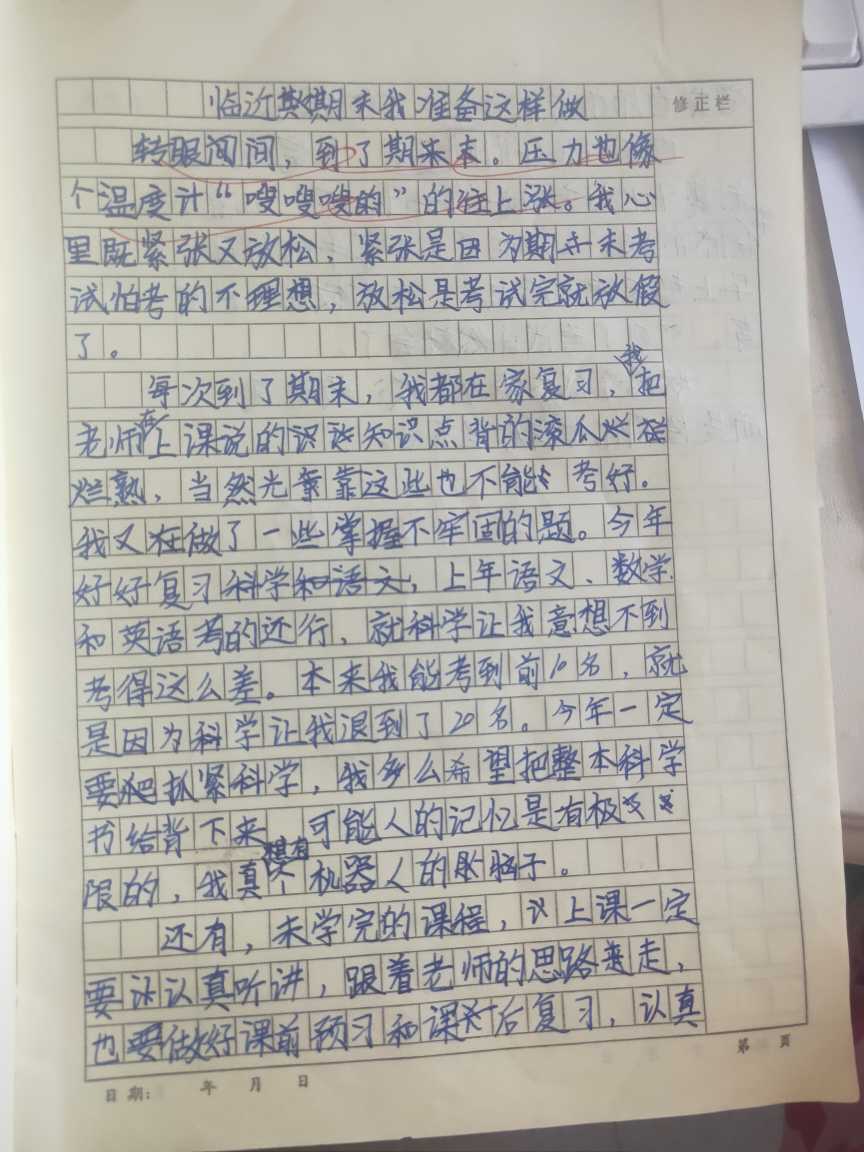 临近期期末我准备这样做
修正栏
转眼间间，到了期末末。压力也像
个温度计“嗖嗖嗖的”的往上涨。我心
里既紧张又放松，紧张是因为期末考
试怕考的不理想，放松是考试完就放假
了。
每次到了期末，我都在家复习，我把
老师在上课说的知识点背的滚瓜烂
烂熟，当然光靠这些也不能考好。
我又在做了一些掌握不牢固的题。今年
好好复习科学和语文，上年语文、数学
和英语考的还行，就科学让我意想不到
考得这么差。本来我能考到前10名，就
是因为科学让我退到了20名。今年一定
要把抓紧科学，我多么希望把整本科学
书给背下来 可能人的记忆是有极
限的，我真想有个机器人的脑子。
还有，未学完的课程，上课一定
要认真听讲，跟着老师的思路走，
也要做好课前预习和课后复习，认真
日期： 年 月 日
第 页